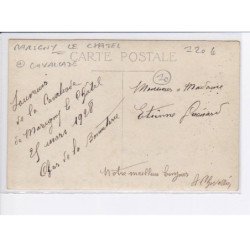 MARIGNY LE CHATEL
1206
@ CAVALCADE
CARTE POSTALE
20
Souvenir
de la Cavalcade
de Marigny le Châtel
25 mars 1928
Monsieur & Madame
Etienne
Notre meilleur bonjour